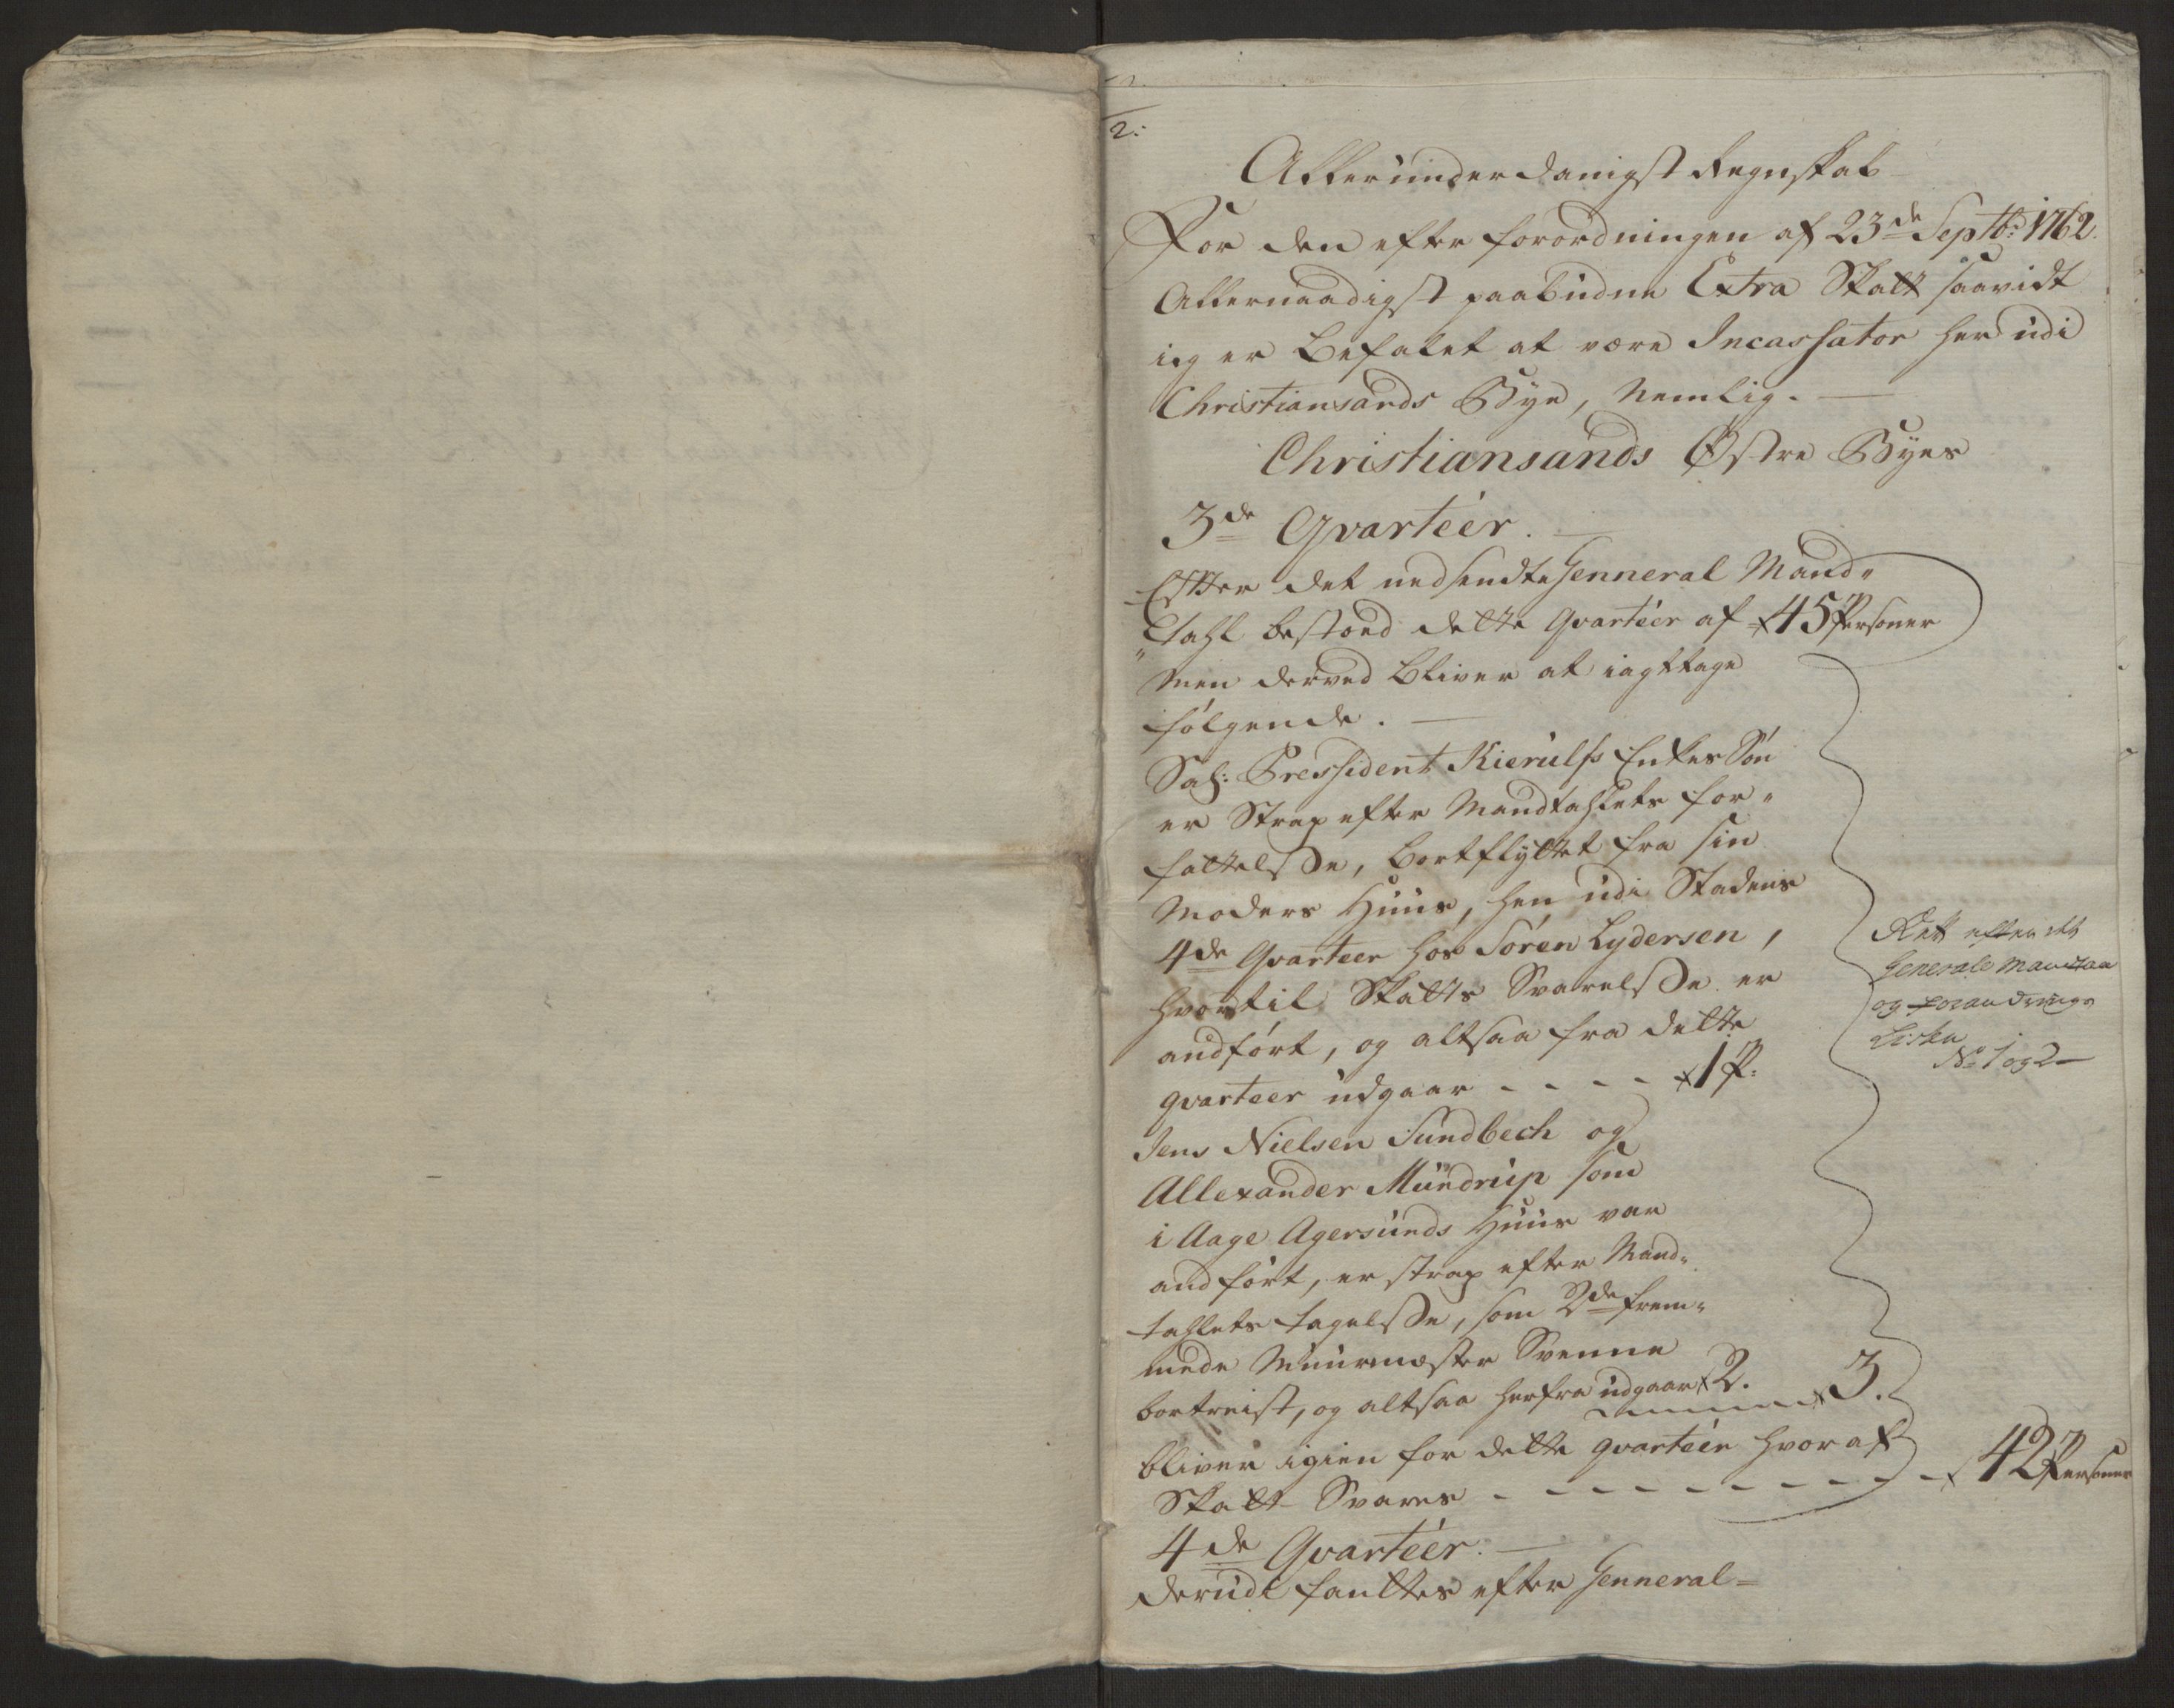 2:
Allerunderdanigst Regnskab
For den efter forordningen af 23de Septb: 1762.
Allernaadigst paabudne Extra Skatt saavidt
ieg er Befalet at være Incassator her udi
Christiansands Bye, Nemlig. —
Christiansands Østre Byes
3de Qvarteer. —
Effter det nedsendte Genneral Mand„
„Tahl bestoed dette Qvarteer af 45 Personer
Men derved Bliver at iagttage
følgende. —
Sal: Pressident Kierulfs Enkes Søn
er Strax efter Mandtahlets for„
fattelsse, bortflyttet fra sin
Moders Huus, hen udi Stadens
4de Qvarteer hos Søren Lydersen,
hvortil Skatts Svarelsse er
andført, og altsaa fra dette
qvarteer udgaar - - - - 1 P:
Jens Nielsen Sundbech og
Allexander Mundrup som
i Aage Agersunds Huus var
andført, er strax efter Mand„
tahlets tagelsse, som 2de frem„
mede Muurmæster Svenne
bortreist, og altsaa herfra udgaar 2. 3.
bliver igien for dette qvarteer hvoraf
Skatt Svares - - - - - - - - - 42 Personer
4de Qvarteer. —
derudi fantes efter Genneral=
Ret efter det
Generale Mandtal
og forandrings
Liste
No 1 og 2 —